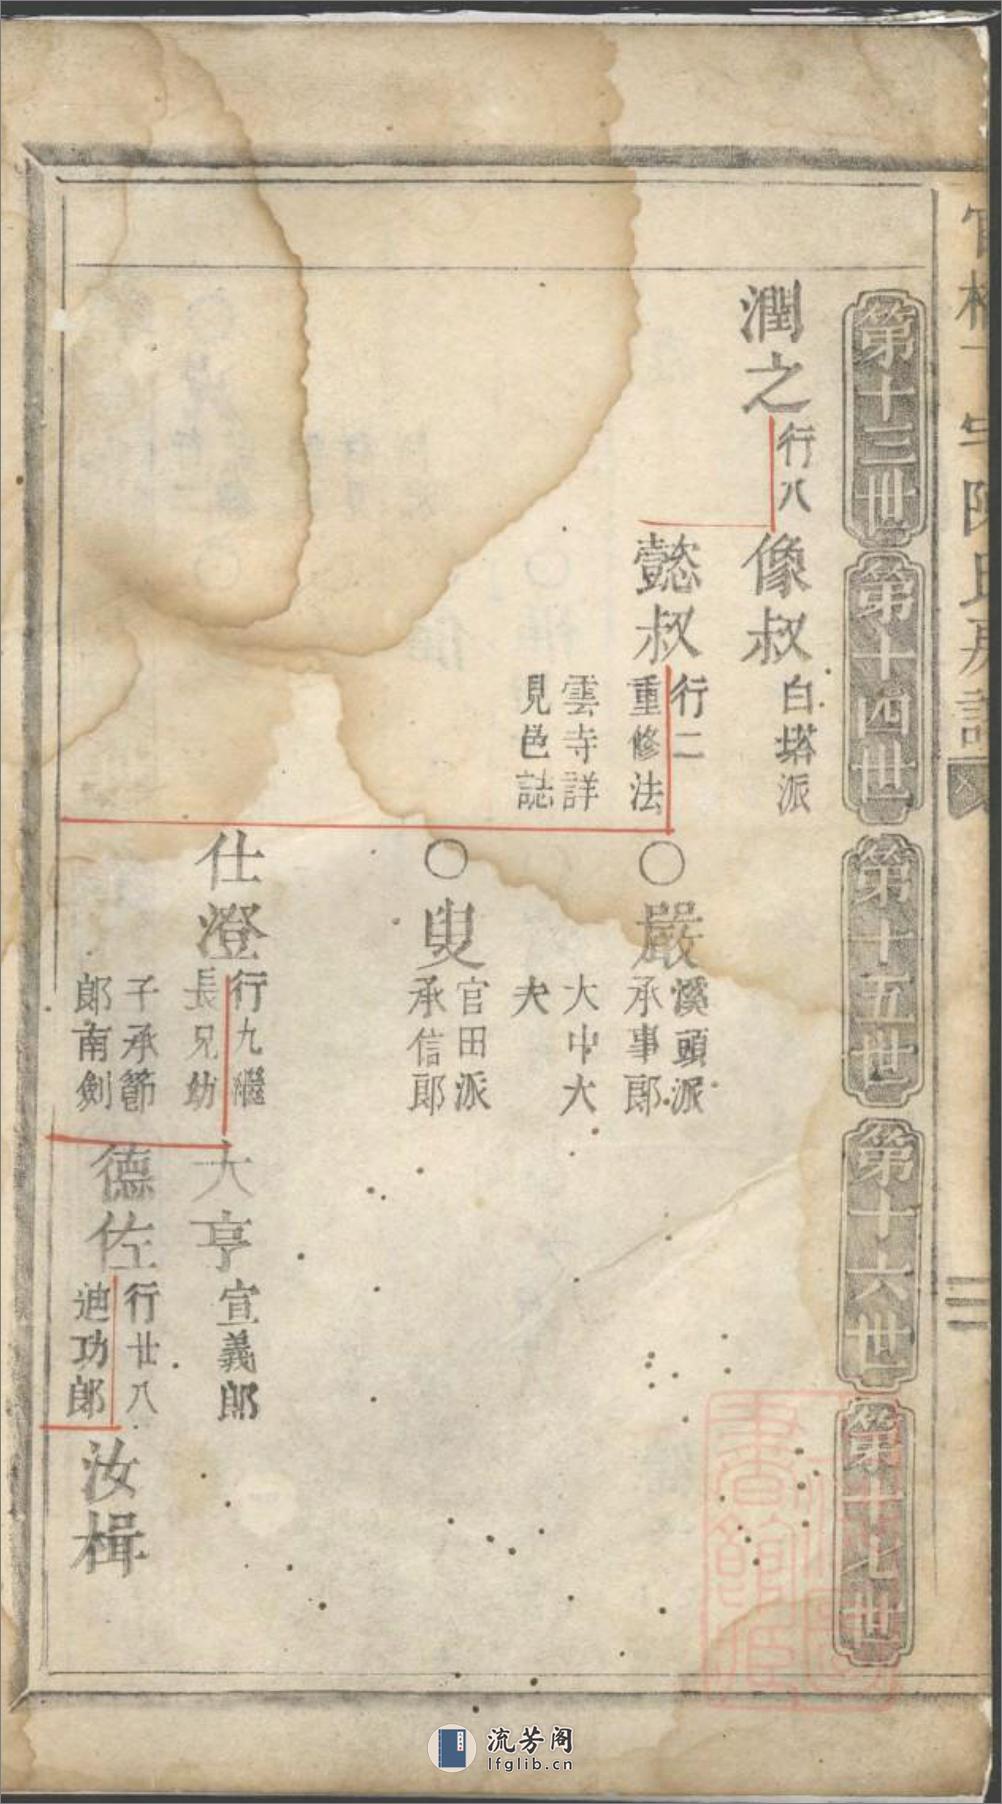 陳氏房譜
第十三世
第十四世
第十五世
第十六世
第十七世
潤之
行八
像叔
白塔派
懿叔
行二
重修法
雲寺詳
見邑誌
〇嚴
溪頭派
承事郎
大中大
夫
〇叟
官田派
承信郎
仕澄
行九繼
長兄幼
子承節
郎南劍
大亨
宣義郎
德佐
行廿八
迪功郎
汝楫
流芳阁
lfglib.cn